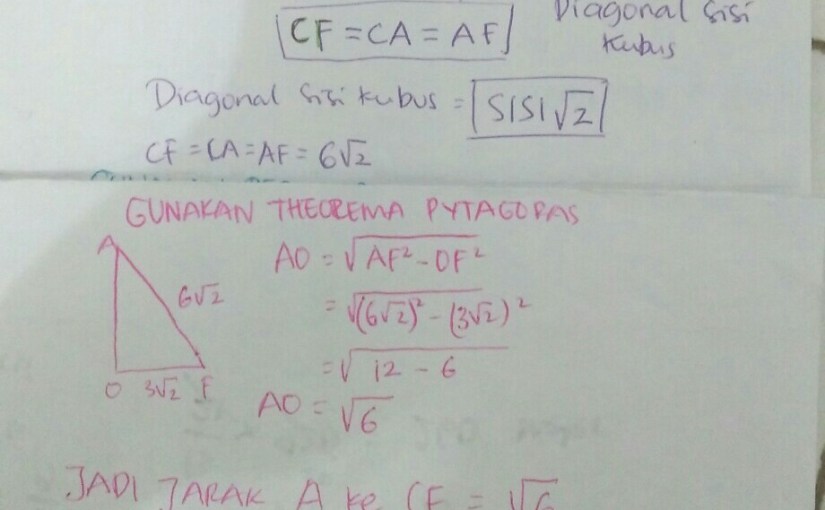 CF = CA = AF
Diagonal Sisi
Kubus
Diagonal Sisi Kubus = SISI√2
CF = CA = AF = 6√2
GUNAKAN THEOREMA PYTAGORAS
A
6√2
O 3√2 F
AO = √AF² - OF²
= √(6√2)² - (3√2)²
= √12 - 6
AO = √6
JADI JARAK A ke CF = √6